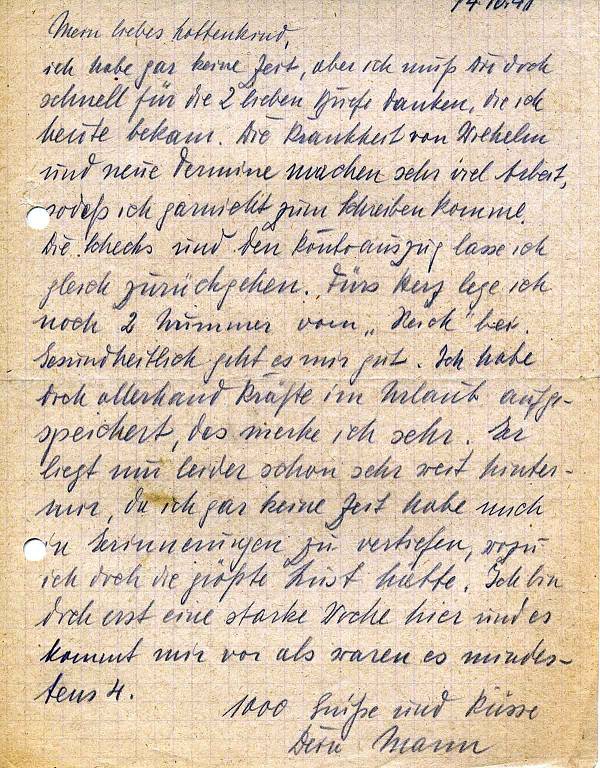 14.10.41
Mein liebes Kottenkind,
ich habe gar keine Zeit, aber ich muß Dir doch
schnell für die 2 lieben Briefe danken, die ich
heute bekam. Die Krankheit von Wilhelm
und neue Termine machen sehr viel Arbeit,
sodaß ich garnicht zum Schreiben komme.
Die Schecks und den Kontoauszug lasse ich
gleich zurückgehen. Fürs Herz lege ich
noch 2 Nummer vom „Reich" bei.
Gesundheitlich geht es mir gut. Ich habe
doch allerhand Kräfte im Urlaub aufge-
speichert, das merke ich sehr. Er
liegt nun leider schon sehr weit hinter-
mir, da ich gar keine Zeit habe mich
in Erinnerungen zu vertiefen, wozu
ich doch die größte Lust hätte. Ich bin
doch erst eine starke Woche hier und es
kommt mir vor als waren es mindes-
tens 4.
1000 Grüße und Küsse
Dein Mann